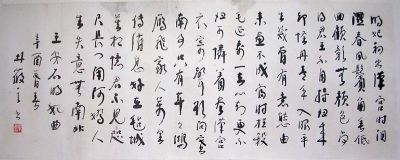 明妃初出漢宫时泪
濕春風鬢角垂低
回顧影無顔色尚
得君王不自持归来
却怪丹青手入眼平
生未曾有意態由
来畫不成當时枉殺
毛延壽一去心知更不
归可憐着盡漢宫
衣寄聲欲問塞
南事只有年年鴻
雁飛家人万里
傳消息好在氈城
莫相憶君不見咫
尺長門闭阿娇人
生失意無南北
王安石明妃曲
辛酉春
林筱之书